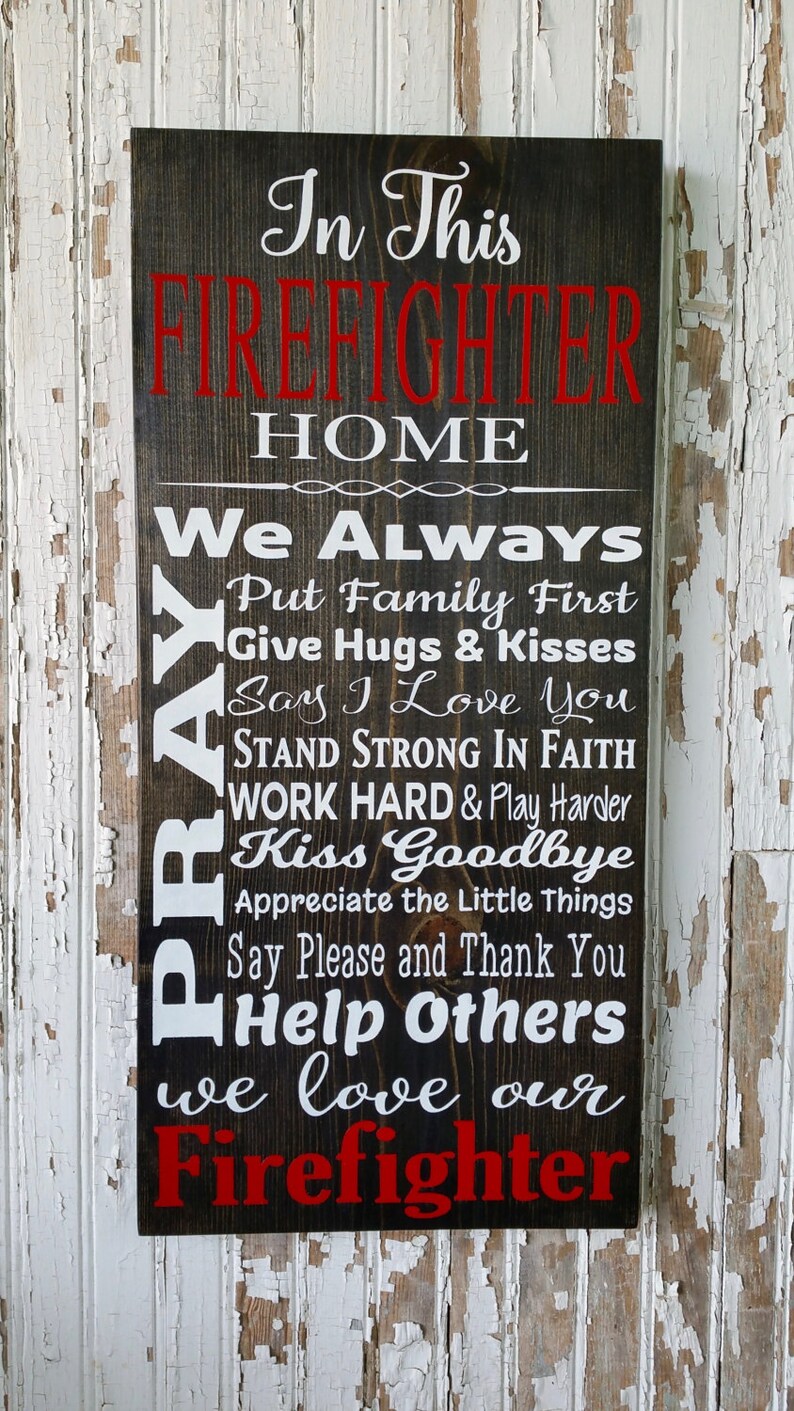 In This
FIREFIGHTER
HOME
We Always
PRAY
Put Family First
Give Hugs & Kisses
Say I Love You
Stand Strong In Faith
WORK HARD & Play Harder
Kiss Goodbye
Appreciate the Little Things
Say Please and Thank You
Help Others
we love our
Firefighter